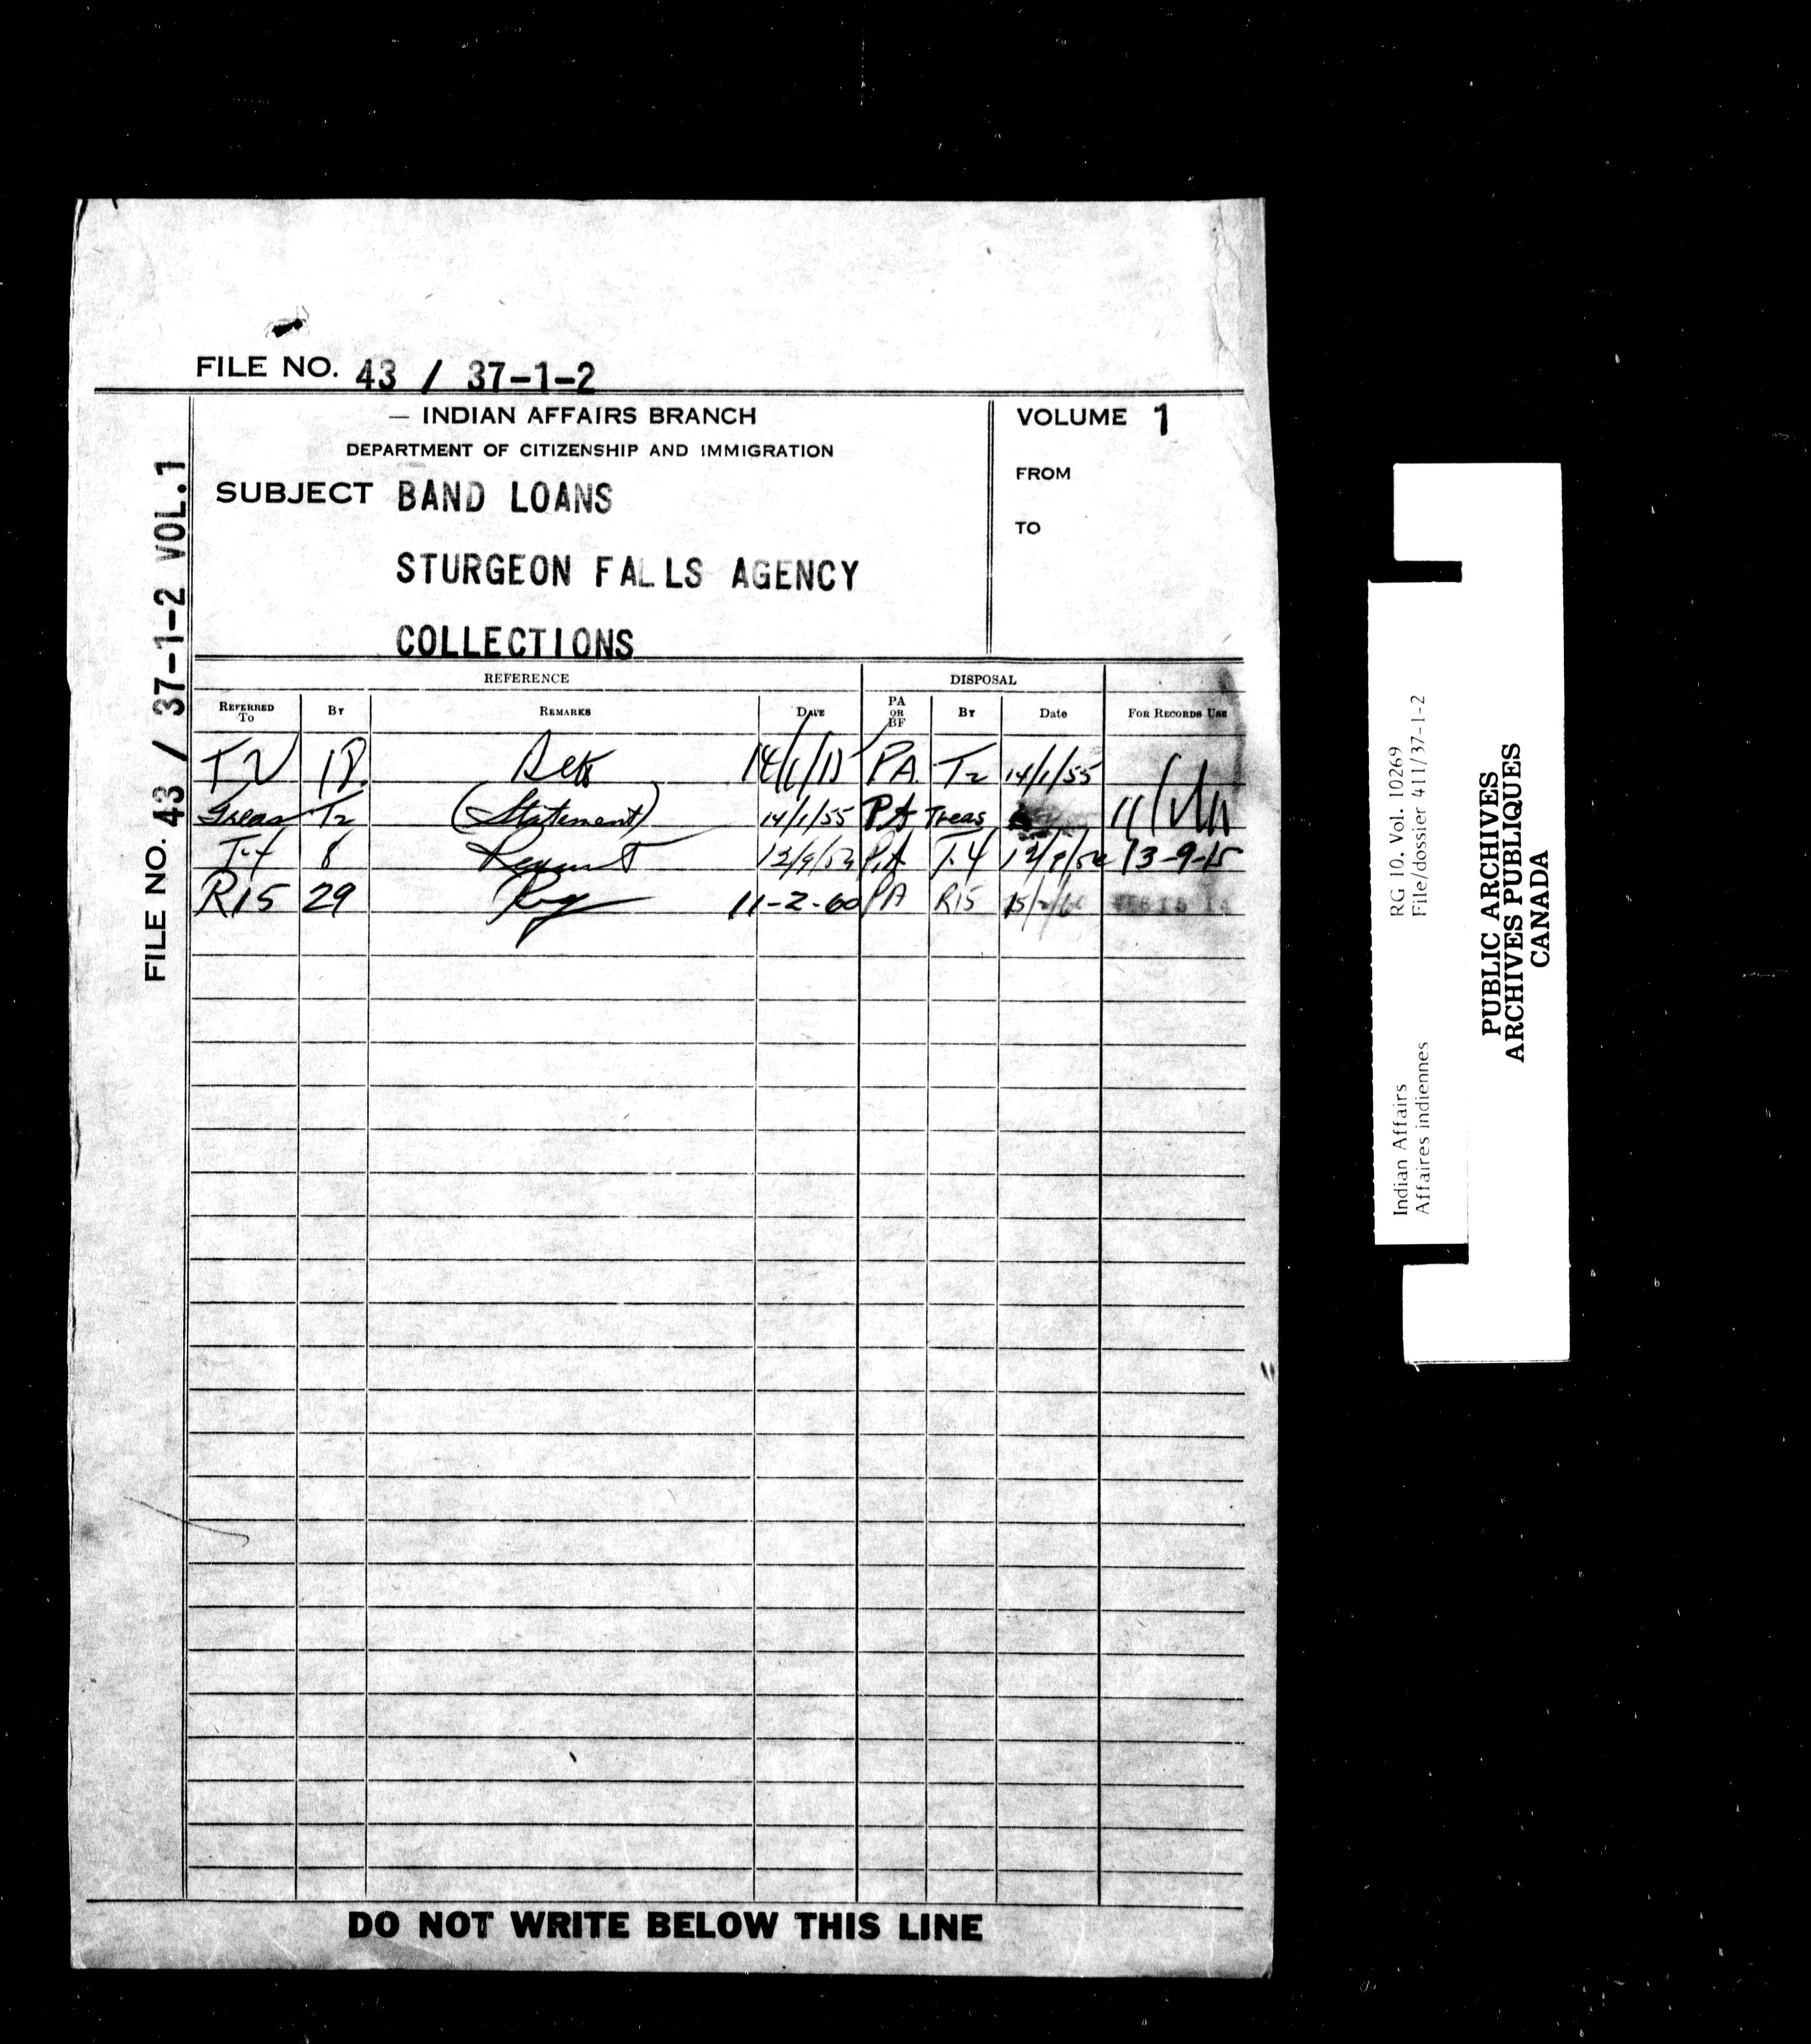 FILE NO. 43 / 37-1-2
— INDIAN AFFAIRS BRANCH
DEPARTMENT OF CITIZENSHIP AND IMMIGRATION
SUBJECT BAND LOANS
STURGEON FALLS AGENCY
COLLECTIONS
VOLUME 1
FROM
TO
FILE NO. 43 / 37-1-2 VOL.1
REFERENCE DISPOSAL
REFERRED TO BY REMARKS DATE PA OR BF BY Date FOR RECORDS USE
T2 18 14/1/55 PA. T2 14/1/55
Treas T2 (Statement) 14/1/55 PA Treas
T-4 8 PA T.4 13-9-
R15 29 11-2-60 PA R15 15/2/60
DO NOT WRITE BELOW THIS LINE
Indian Affairs RG 10, Vol. 10269
Affaires indiennes File/dossier 411/37-1-2
PUBLIC ARCHIVES
ARCHIVES PUBLIQUES
CANADA